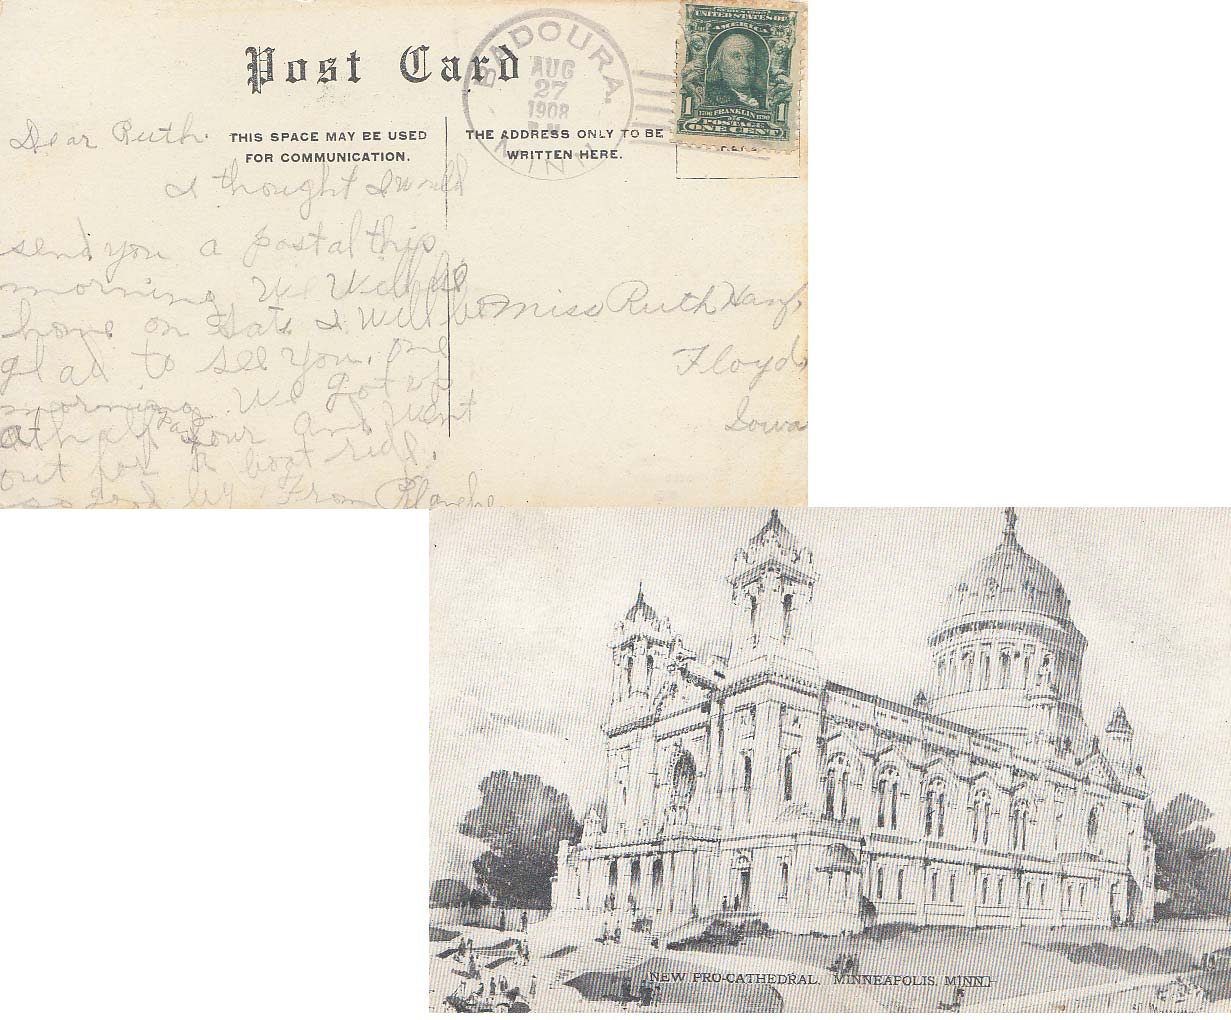 Post Card
BADOURA.
AUG
27
1908
MINN.
SERIES 1902
UNITED STATES OF
AMERICA
1 1706 FRANKLIN 1790 1
POSTAGE
ONE CENT
THIS SPACE MAY BE USED
FOR COMMUNICATION.
THE ADDRESS ONLY TO BE
WRITTEN HERE.
Dear Ruth.
I thought I would
send you a postal this
morning We Will be
home on Sat. I Will be
glad to see you. one
morning We got up
at half past four and went
out for a boat ride.
so good by From Blanche
Miss Ruth
Floyd
Iowa
NEW PRO-CATHEDRAL. MINNEAPOLIS. MINN.